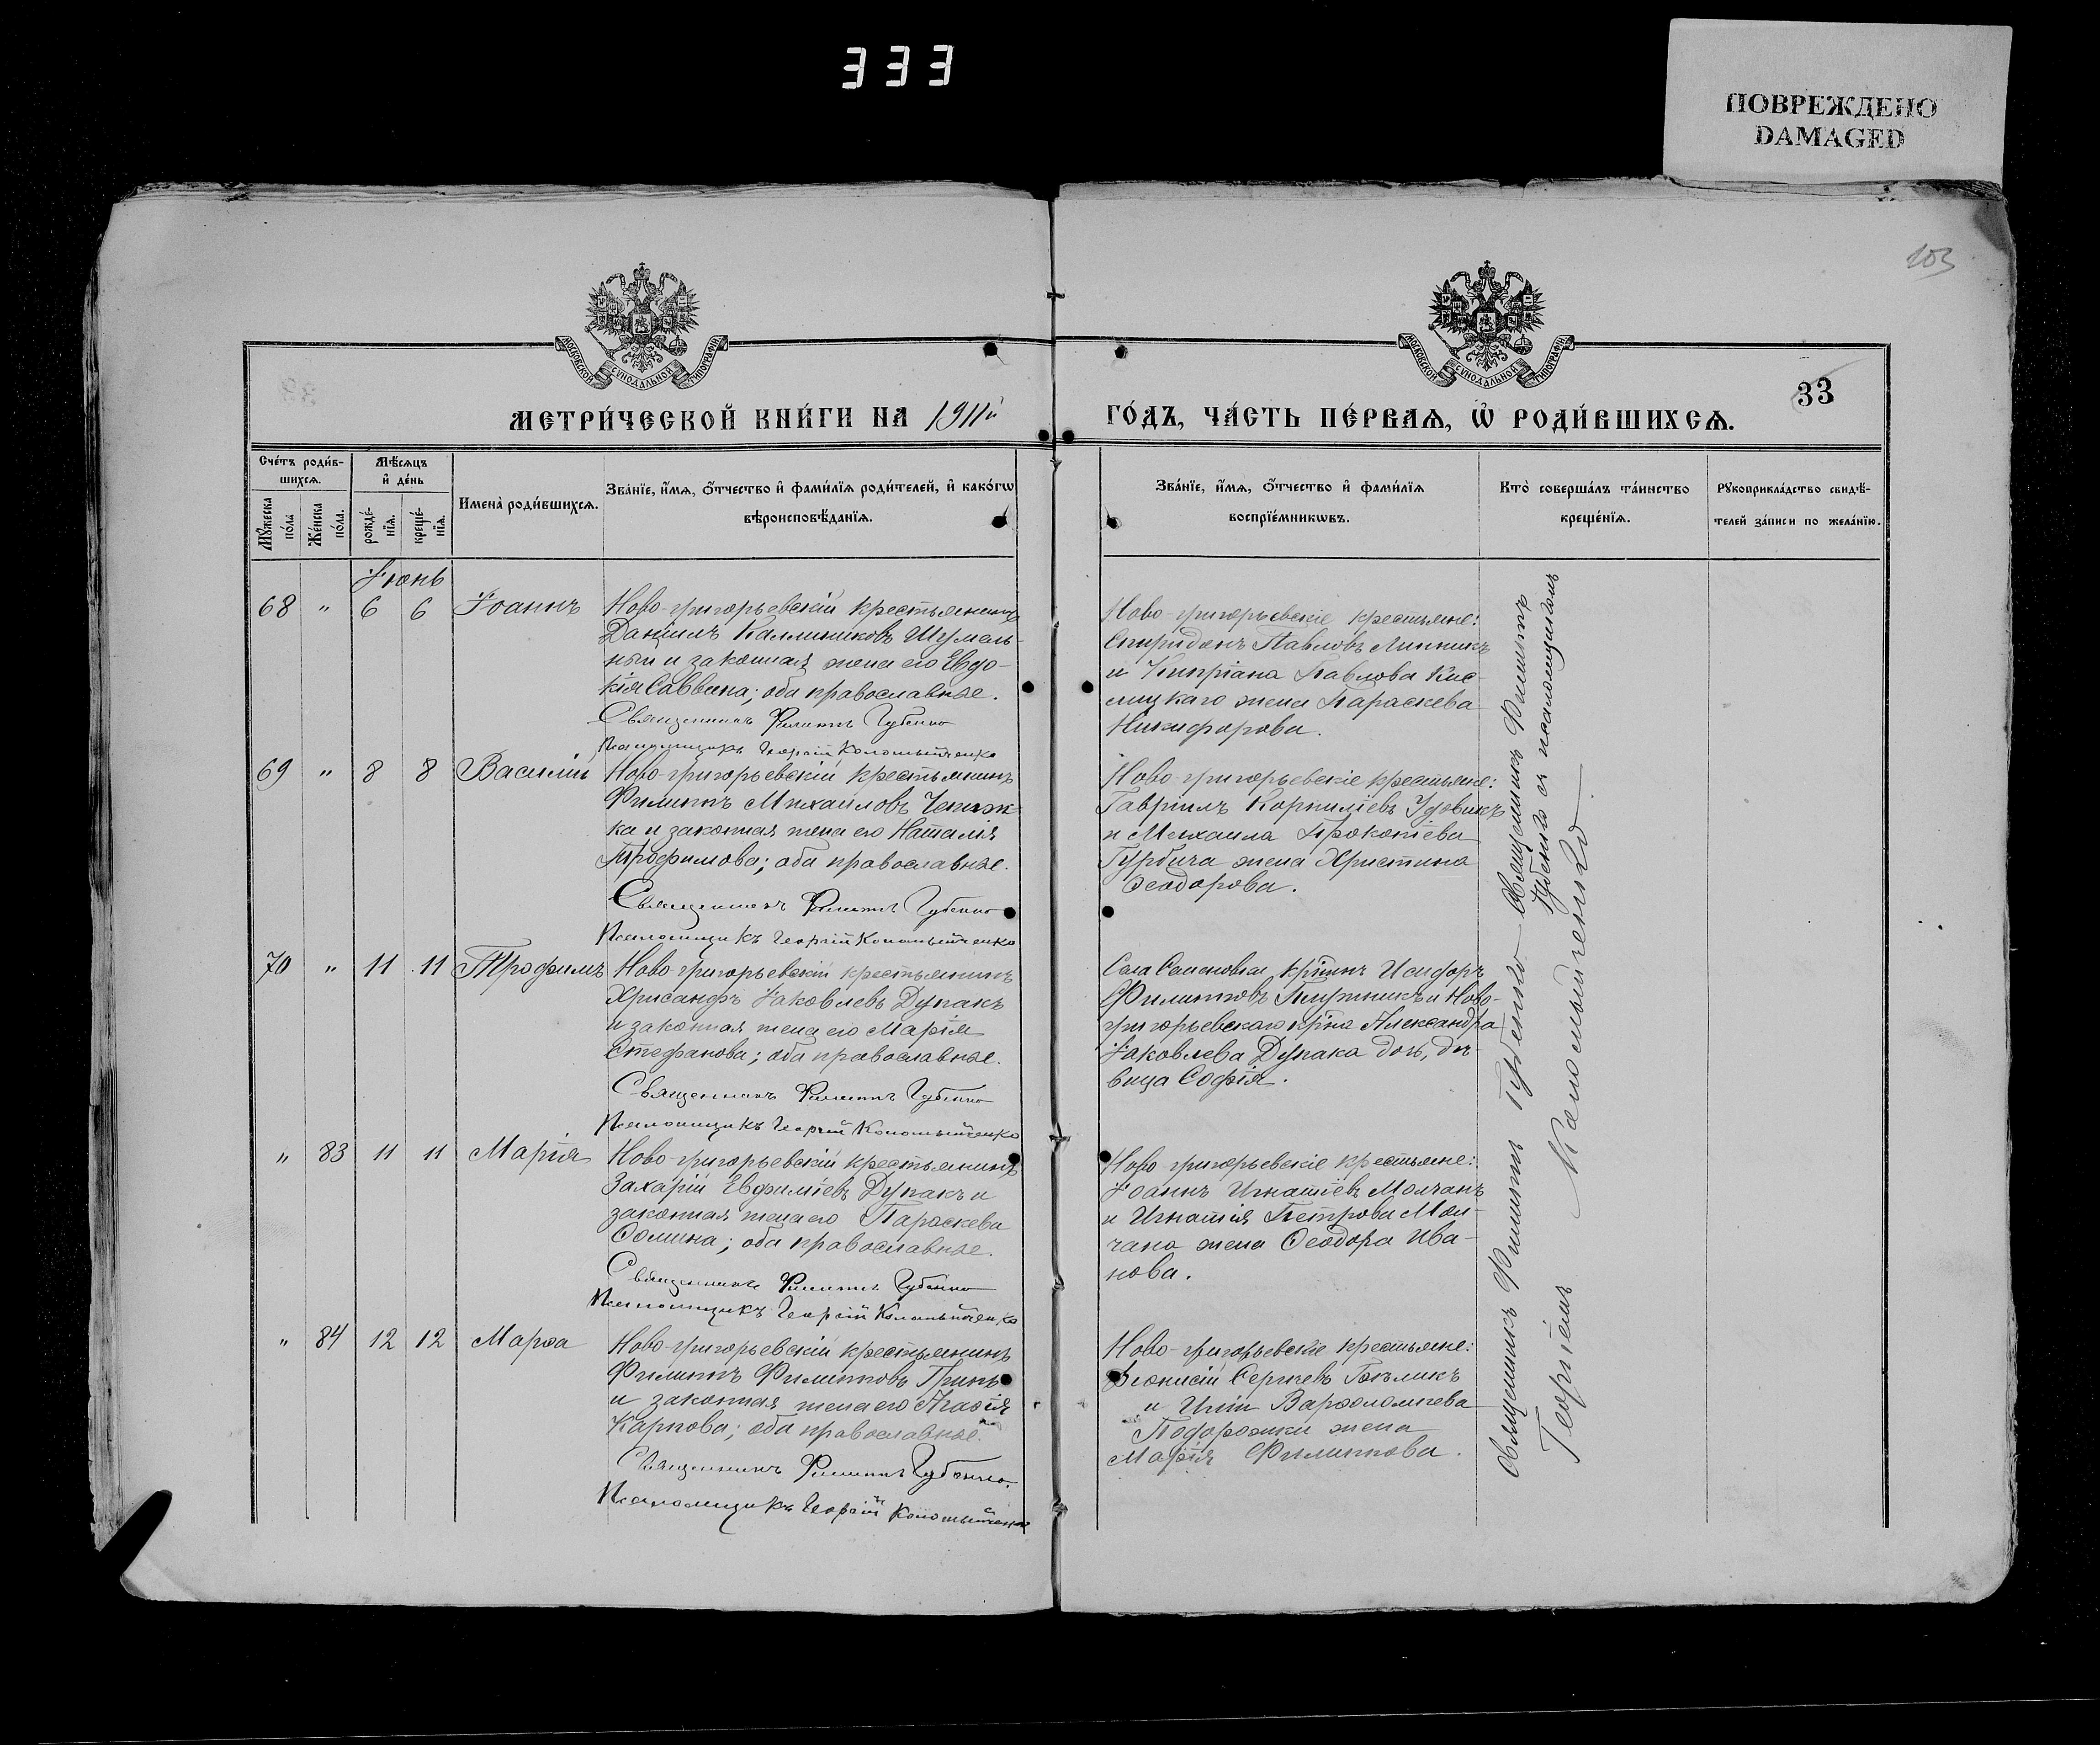 333
ПОВРЕЖДЕНО
DAMAGED
103
МОСКОВСКОЙ СѴНОДАЛЬНОЙ ТИПОГРАФІИ
МОСКОВСКОЙ СѴНОДАЛЬНОЙ ТИПОГРАФІИ
33
МЕТРИ́ЧЕСКОЙ КНИ́ГИ НА 1911й
ГО́ДЪ, ЧА́СТЬ ПЕ́РВАѦ, Ѡ҆ РОДИ́ВШИХСѦ.
Сче́тъ роди́в-
шихсѧ.
Мꙋ́жеска
по́ла
Же́нска
по́ла.
Мѣ́сѧцъ
и҆ де́нь
рожде́-
нїѧ.
креще́-
нїѧ.
Имена̀ роди́вшихсѧ.
Зва́нїе, и҆́мѧ, ѻ҆́тчество и҆ фами́лїѧ роди́телей, и҆ како́гѡ
вѣроисповѣ́данїѧ.
Зва́нїе, и҆́мѧ, ѻ҆́тчество и҆ фами́лїѧ
воспрїе́мникѡвъ.
Кто̀ соверша́лъ та́инство
креще́нїѧ.
Рꙋкоприкла́дство свидѣ́-
телей за́писи по жела́нїю.
Іюнь
68 " 6 6 Іоаннъ
Ново-григорьевскій крестьянинъ
Даніилъ Каллиниковъ Шумель-
ный и законная жена его Евдо-
кія Саввина; оба православные.
Священникъ Филиппъ Губенко
Псаломщикъ Георгій Коломыйченко
Ново-григорьевскіе крестьяне:
Спиридонъ Павловъ Линникъ
и Кипріана Павлова Кис-
лицкаго жена Параскева
Никифорова.
69 " 8 8 Василій
Ново-григорьевскій крестьянинъ
Филиппъ Михайловъ Чепиж-
ка и законная жена его Наталія
Трофимова; оба православные.
Священникъ Филиппъ Губенко
Псаломщикъ Георгій Коломыйченко
Ново-григорьевскіе крестьяне:
Гавріилъ Корниліевъ Удовикъ
и Михаила Прокопіева
Гурбича жена Христина
Ѳеодорова.
70 " 11 11 Трофимъ
Ново-григорьевскій крестьянинъ
Хрисанфъ Іаковлевъ Дупакъ
и законная жена его Марія
Стефанова; оба православные.
Священникъ Филиппъ Губенко
Псаломщикъ Георгій Коломыйченко
Села Семеновки кр-нинъ Исидоръ
Филипповъ и Ново-
григорьевскаго кр-на Александра
Іаковлева Дупака дочь, дѣ-
вица Софія.
" 83 11 11 Марія
Ново-григорьевскій крестьянинъ
Захарій Евфиміевъ Дупакъ и
законная жена его Параскева
Ѳомина; оба православные.
Священникъ Филиппъ Губенко
Псаломщикъ Георгій Коломыйченко
Ново-григорьевскіе крестьяне:
Іоаннъ Игнатіевъ Молчанъ
и Игнатія Петрова Мол-
чана жена Ѳеодора Ива-
нова.
" 84 12 12 Марѳа
Ново-григорьевскій крестьянинъ
Филиппъ Филипповъ Гринь
и законная жена его Агаѳія
Карпова; оба православные.
Священникъ Филиппъ Губенко.
Псаломщикъ Георгій Коломыйченко
Ново-григорьевскіе крестьяне:
Діонисій Сергіевъ
и Варѳоломеева
Подорожки жена
Марія Филиппова.
Священникъ Филиппъ Губенко Священникъ Филиппъ
Губенко съ псаломщикомъ
Георгіемъ Коломыйченко